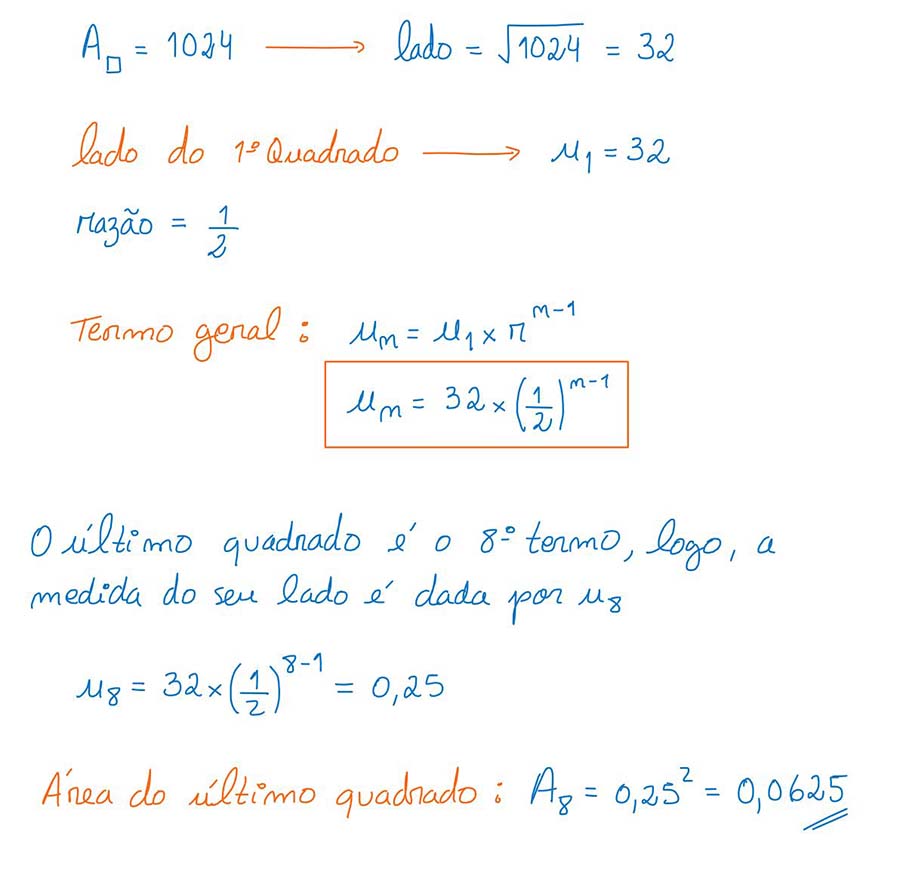 A□ = 1024 → lado = √1024 = 32
lado do 1º Quadrado → u₁ = 32
razão = 1/2
Termo geral : uₙ = u₁ × rⁿ⁻¹
uₙ = 32 × (1/2)ⁿ⁻¹
O último quadrado é o 8º termo, logo, a
medida do seu lado é dada por u₈
u₈ = 32 × (1/2)⁸⁻¹ = 0,25
Área do último quadrado : A₈ = 0,25² = 0,0625